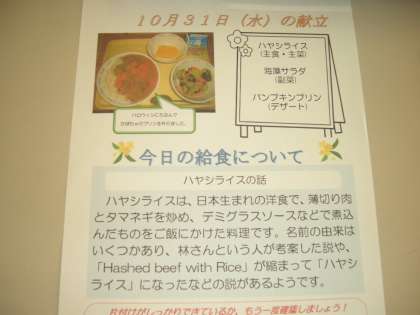 10月31日(水)の献立
ハヤシライス
(主食・主菜)
海藻サラダ
(副菜)
パンプキンプリン
(デザート)
ハロウィンにちなんで
かぼちゃのプリンを作りました。
今日の給食について
ハヤシライスの話
ハヤシライスは、日本生まれの洋食で、薄切り肉
とタマネギを炒め、デミグラスソースなどで煮込
んだものをご飯にかけた料理です。名前の由来は
いくつかあり、林さんという人が考案した説や、
「Hashed beef with Rice」が縮まって「ハヤシ
ライス」になったなどの説があるようです。
片付けがしっかりできているか、もう一度確認しましょう!